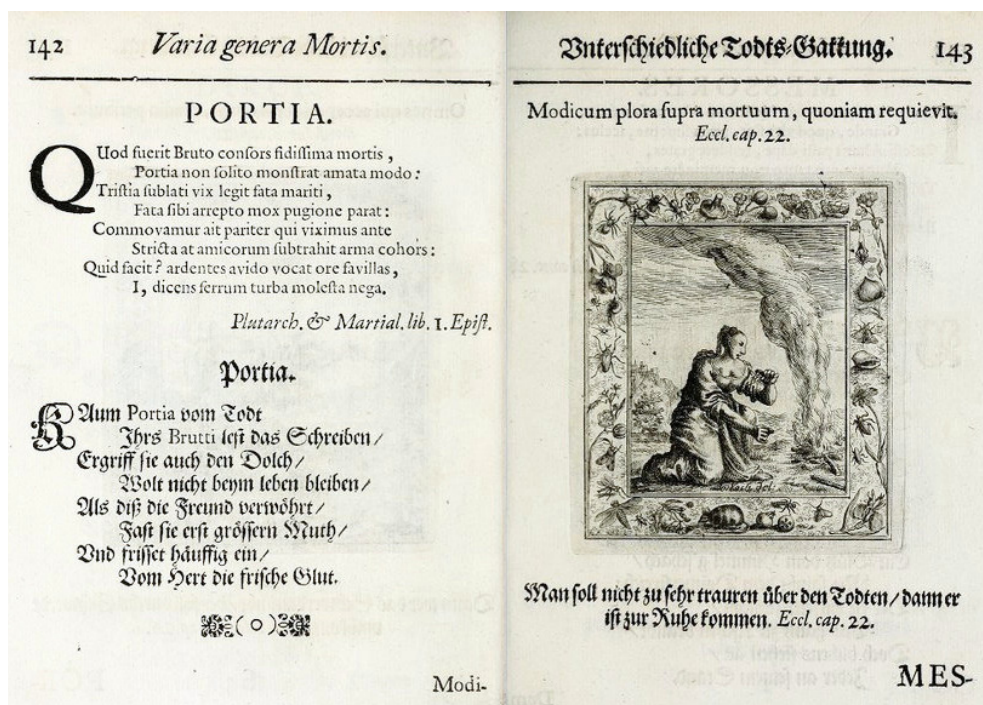 142 Varia genera Mortis.
PORTIA.
QUod fuerit Bruto consors fidissima mortis,
Portia non solito monstrat amata modo:
Tristia sublati vix legit fata mariti,
Fata sibi arrepto mox pugione parat:
Commovamur ait pariter qui viximus ante
Stricta at amicorum subtrahit arma cohors:
Quid facit? ardentes avido vocat ore favillas,
I, dicens ferrum turba molesta nega.
Plutarch. & Martial. lib. 1. Epist.
Portia.
KAum Portia vom Todt
Ihrs Brutti lest das Schreiben/
Ergriff sie auch den Dolch/
Wolt nicht beym leben bleiben/
Als diß die Freund verwöhrt/
Fast sie erst grössern Muth/
Vnd frisset häuffig ein/
Vom Hert die frische Glut.
(o)
Modi-
Vnterschiedliche Todts-Gattung. 143
Modicum plora supra mortuum, quoniam requievit.
Eccl. cap. 22.
Man soll nicht zu sehr trauren über den Todten/ dann er
ist zur Ruhe kommen. Eccl. cap. 22.
MES-